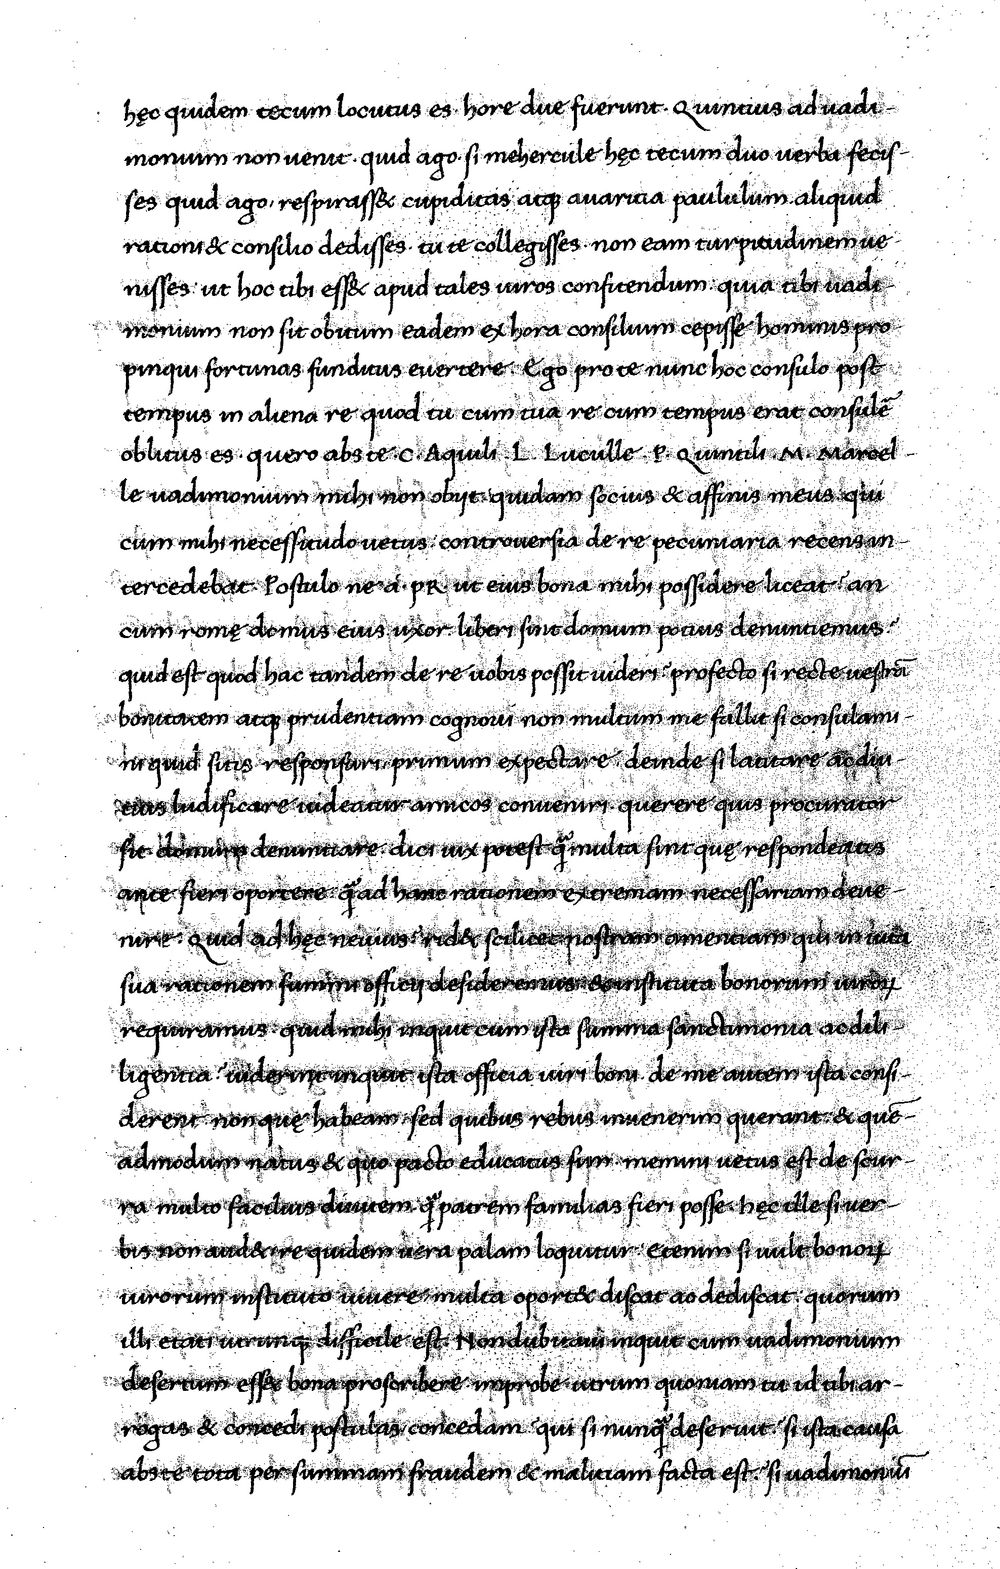 hęc quidem tecum locutus es. hore due fuerunt. Quintius ad uadi-
monium non uenit. quid ago. si mehercule hęc tecum duo uerba fecis-
ses quid ago. respirass& cupiditas atq; auaritia paululum. aliquid
rationi & consilio dedisses. tu te collegisses. non eam turpitudinem ue-
nisses. ut hoc tibi ess& apud tales uiros confitendum. quia tibi uadi-
monium non sit obitum eadem ex hora consilium cepisse hominis pro
pinqui fortunas funditus euertere. Ego pro te nunc hoc consulo post
tempus in aliena re quod tu cum tua re cum tempus erat consulē
oblitus es. quero abs te. C. Aquili. L. Luculle. P. Quintili. M. Marcel-
le uadimonium mihi non obijt. quidam socius & affinis meus. qui
cum mihi necessitudo uetus. controuersia de re pecuniaria recens in-
tercedebat. Postulo ne a. PR. ut eius bona mihi possidere liceat? an
cum romę domus eius uxor liberi sint domum potius denuntiemus?
quid est quod hac tandem de re uobis possit uideri? profecto si recte uestrā
bonitatem atq; prudentiam cognoui non multum me fallit si consulami-
ni quid sitis responsuri. primum expectare. deinde si latitare ac diu-
tius ludificare uideatur amicos conueniri. querere quis procurator
sit domum denuntiare. dici uix potest q̄ multa sint quę respondeatis
ante fieri oportere. q̄ ad hanc rationem extremam necessariam deue-
nire. Quid ad hęc neuius? rid& scilicet nostram amentiam qui in uita
sua rationem summi officij desideremus. & instituta bonorum uiroꝝ
requiramus. quid mihi inquit cum ista summa sanctimonia ac dili-
ligentia? uiderint inquit ista officia uiri boni. de me autem ista consi-
derent. non quę habeam. sed quibus rebus inuenerim querant. & quē-
admodum natus & quo pacto educatus sim. memini uetus est de scur-
ra multo facilius diuitem. q̄ patrem familias fieri posse. hęc ille si uer-
bis non aud&. re quidem uera palam loquitur. Etenim si uult bonoꝝ
uirorum instituto uiuere. multa oport& discat ac dediscat. quorum
illi etati utrunq; difficile est. Non dubitaui inquit cum uadimonium
desertum ess& bona proscribere. improbe. uerum quoniam tu id tibi ar-
rogas & concedi postulas. concedam. qui si nunq̄ deseruit? si ista causa
abs te tota per summam fraudem & malitiam facta est. si uadimoniū